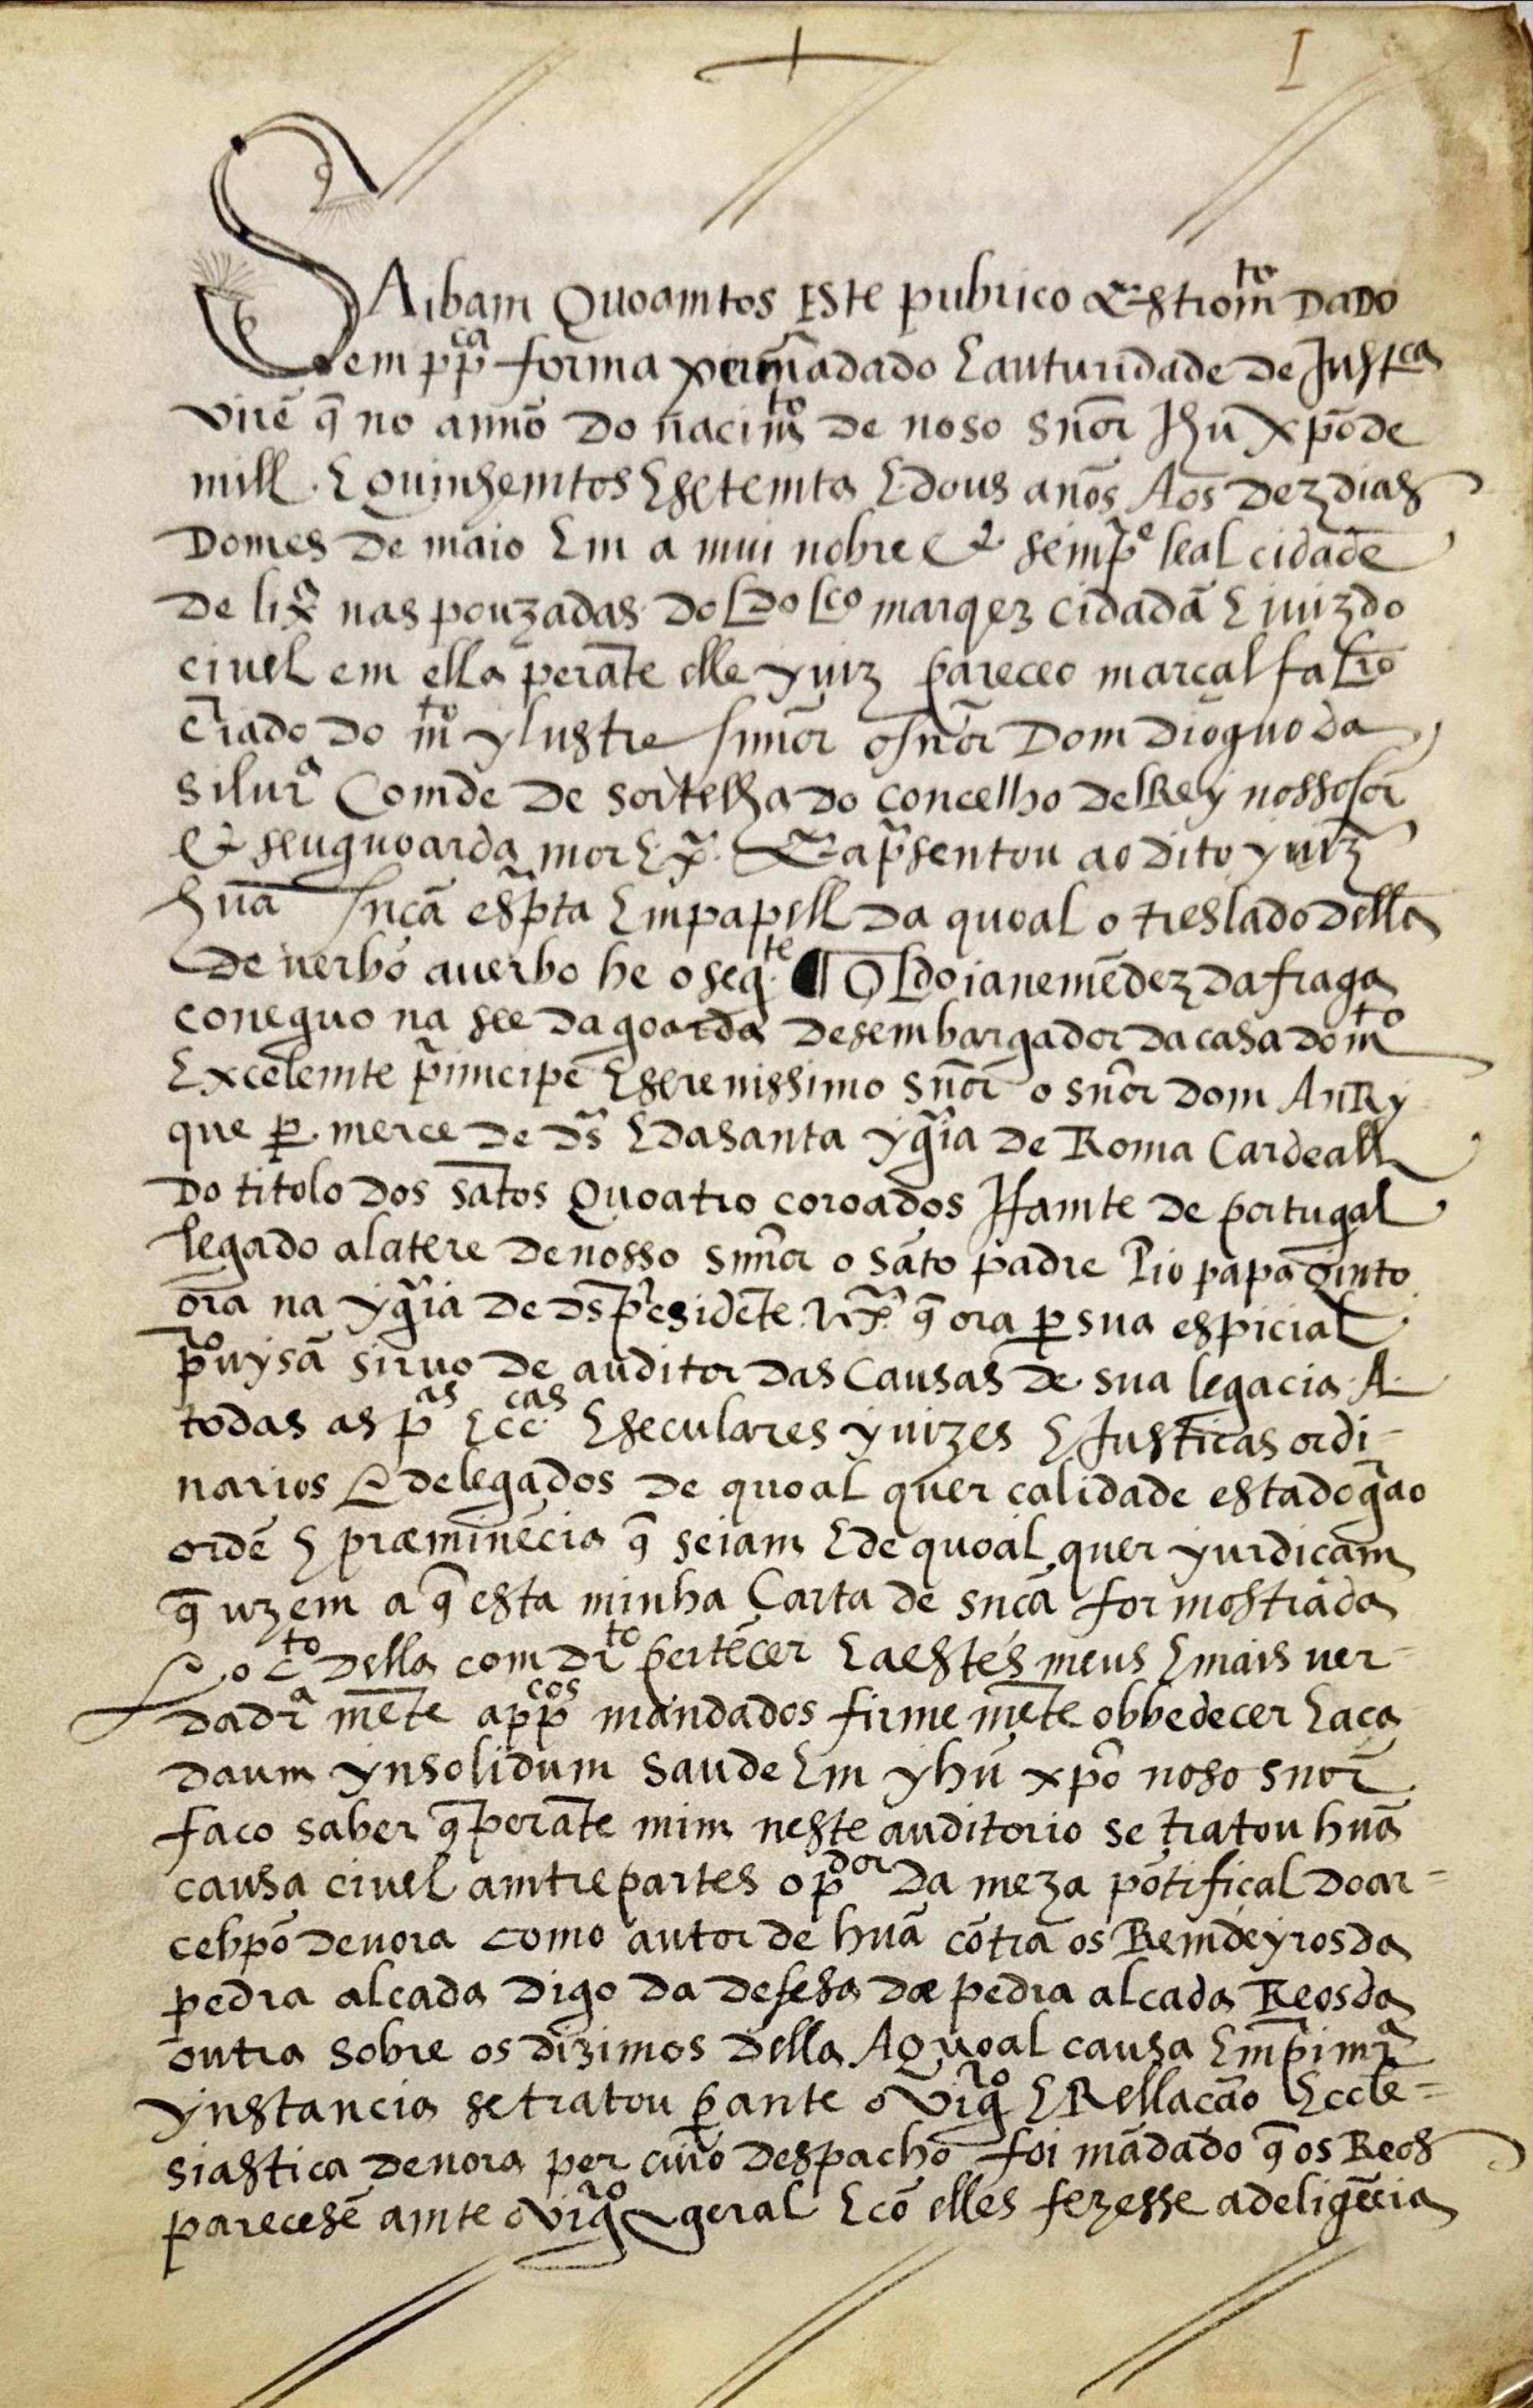 I
SAibam Quoamtos Este pubrico Estromto Dado
em ppca forma per mãdado E auturidade de Justca
virẽ q̃ no anno Do nacimto De noso sñor Jhũ xpõ de
mill. E Quinhemtos E setemta E dous anos Aos Dez dias
Do mes De maio Em a mui nobre E sempre leal cidade
De lixa nas pouzadas Do Ldo Lco marqez cidadã E juiz do
civel em ella perãte elle yuiz pareceo marcal falro
criado do mto ylustre snñor o sñor Dom dioguo da
silvra Comde De sortelha do concelho delRey nosso sor
E seu guoarda mor E.x̃. E ap̃sentou ao dito yuiz
hũa sncã esp̃ta Em papell Da quoal o treslado della
De verbo averbo he o segte ¶ O Ldo iane mẽdez da fraga
coneguo na see da goarda Desembargador da casa do mto
Excelemte p̃imcipe E serenissimo sñor o sñor dom AnRy
que per merce de Ds̃ E da santa yg̃ia de Roma Cardeall
Do titolo dos sãtos Quoatro coroados Jfamte de portugal
legado alatere de nosso snñor o sãto padre Pio papa qinto
ora na yg̃ia de Ds̃ p̃esidẽte. &x̃. q̃ ora per sua espicial
p̃ovysã sirvo de auditor das Causas de sua legacia. A
todas as pas Ecccas E seculares yuizes E Justicas ordi-
narios E delegados de quoal quer calidade estado g̃ao
ordẽ E præminẽcia q̃ seiam E de quoal quer yurdicam
q̃ uzem a q̃ esta minha Carta de sncã for mostrada
E o cto della com drto pertẽcer E aestes meus E mais ver-
dadra mẽte appcos mandados firme mẽte obbedecer E aca
da um ynsolidum saude Em yhũ xpõ noso snor
faco saber q̃ perãte mim neste auditorio se tratou hũa
causa civel amtre partes o pdor Da meza põtifical do ar-
cebpõ devora como autor de hũa cõtra os Remdeyros da
pedra alcada Digo da defesa dæ pedra alcada Reos da
outra sobre os dizimos della A Quoal causa Em p̃imra
ynstancia se tratou perante o vigro E Rellacão Eccle-
siastica devora per cuio Despacho foi mãdado q̃ os Reos
parecesẽ amte o vigro geral E cõ elles fezesse a deligẽcia